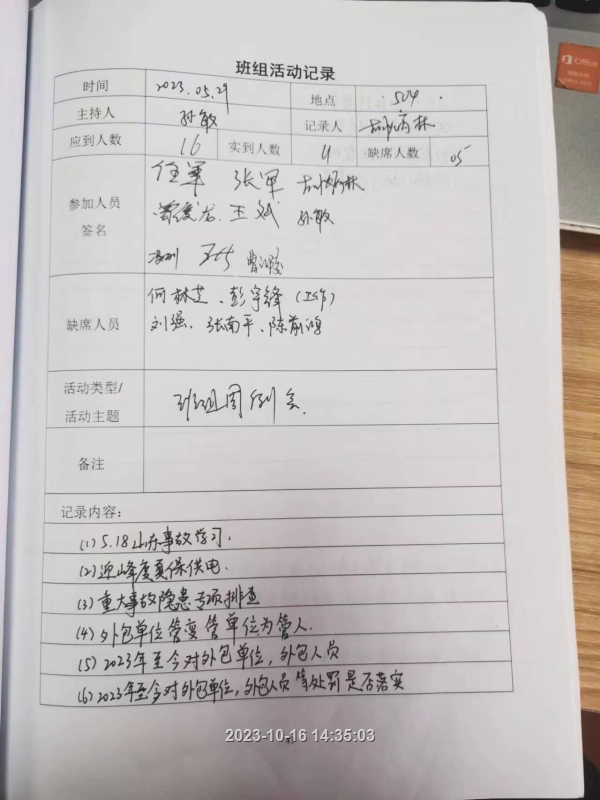 班组活动记录
时间 2023.05.29 地点 504.
主持人 孙敏 记录人
应到人数 16 实到人数 缺席人数 05
参加人员 签名
任军 张军
曾俊龙 王斌 孙敏
缺席人员
何林芝、彭宇锋(工作)
刘强、张南平、陈前鸿
活动类型/
活动主题 班组周例会.
备注
记录内容:
(1) 5.18山东事故学习.
(2) 迎峰度夏保供电.
(3) 重大事故隐患专项排查
(4) 外包单位管变管单位为管人.
(5) 2023年至今对外包单位,外包人员
(6) 2023年至今对外包单位,外包人员等处罚是否落实
2023-10-16 14:35:03
Office